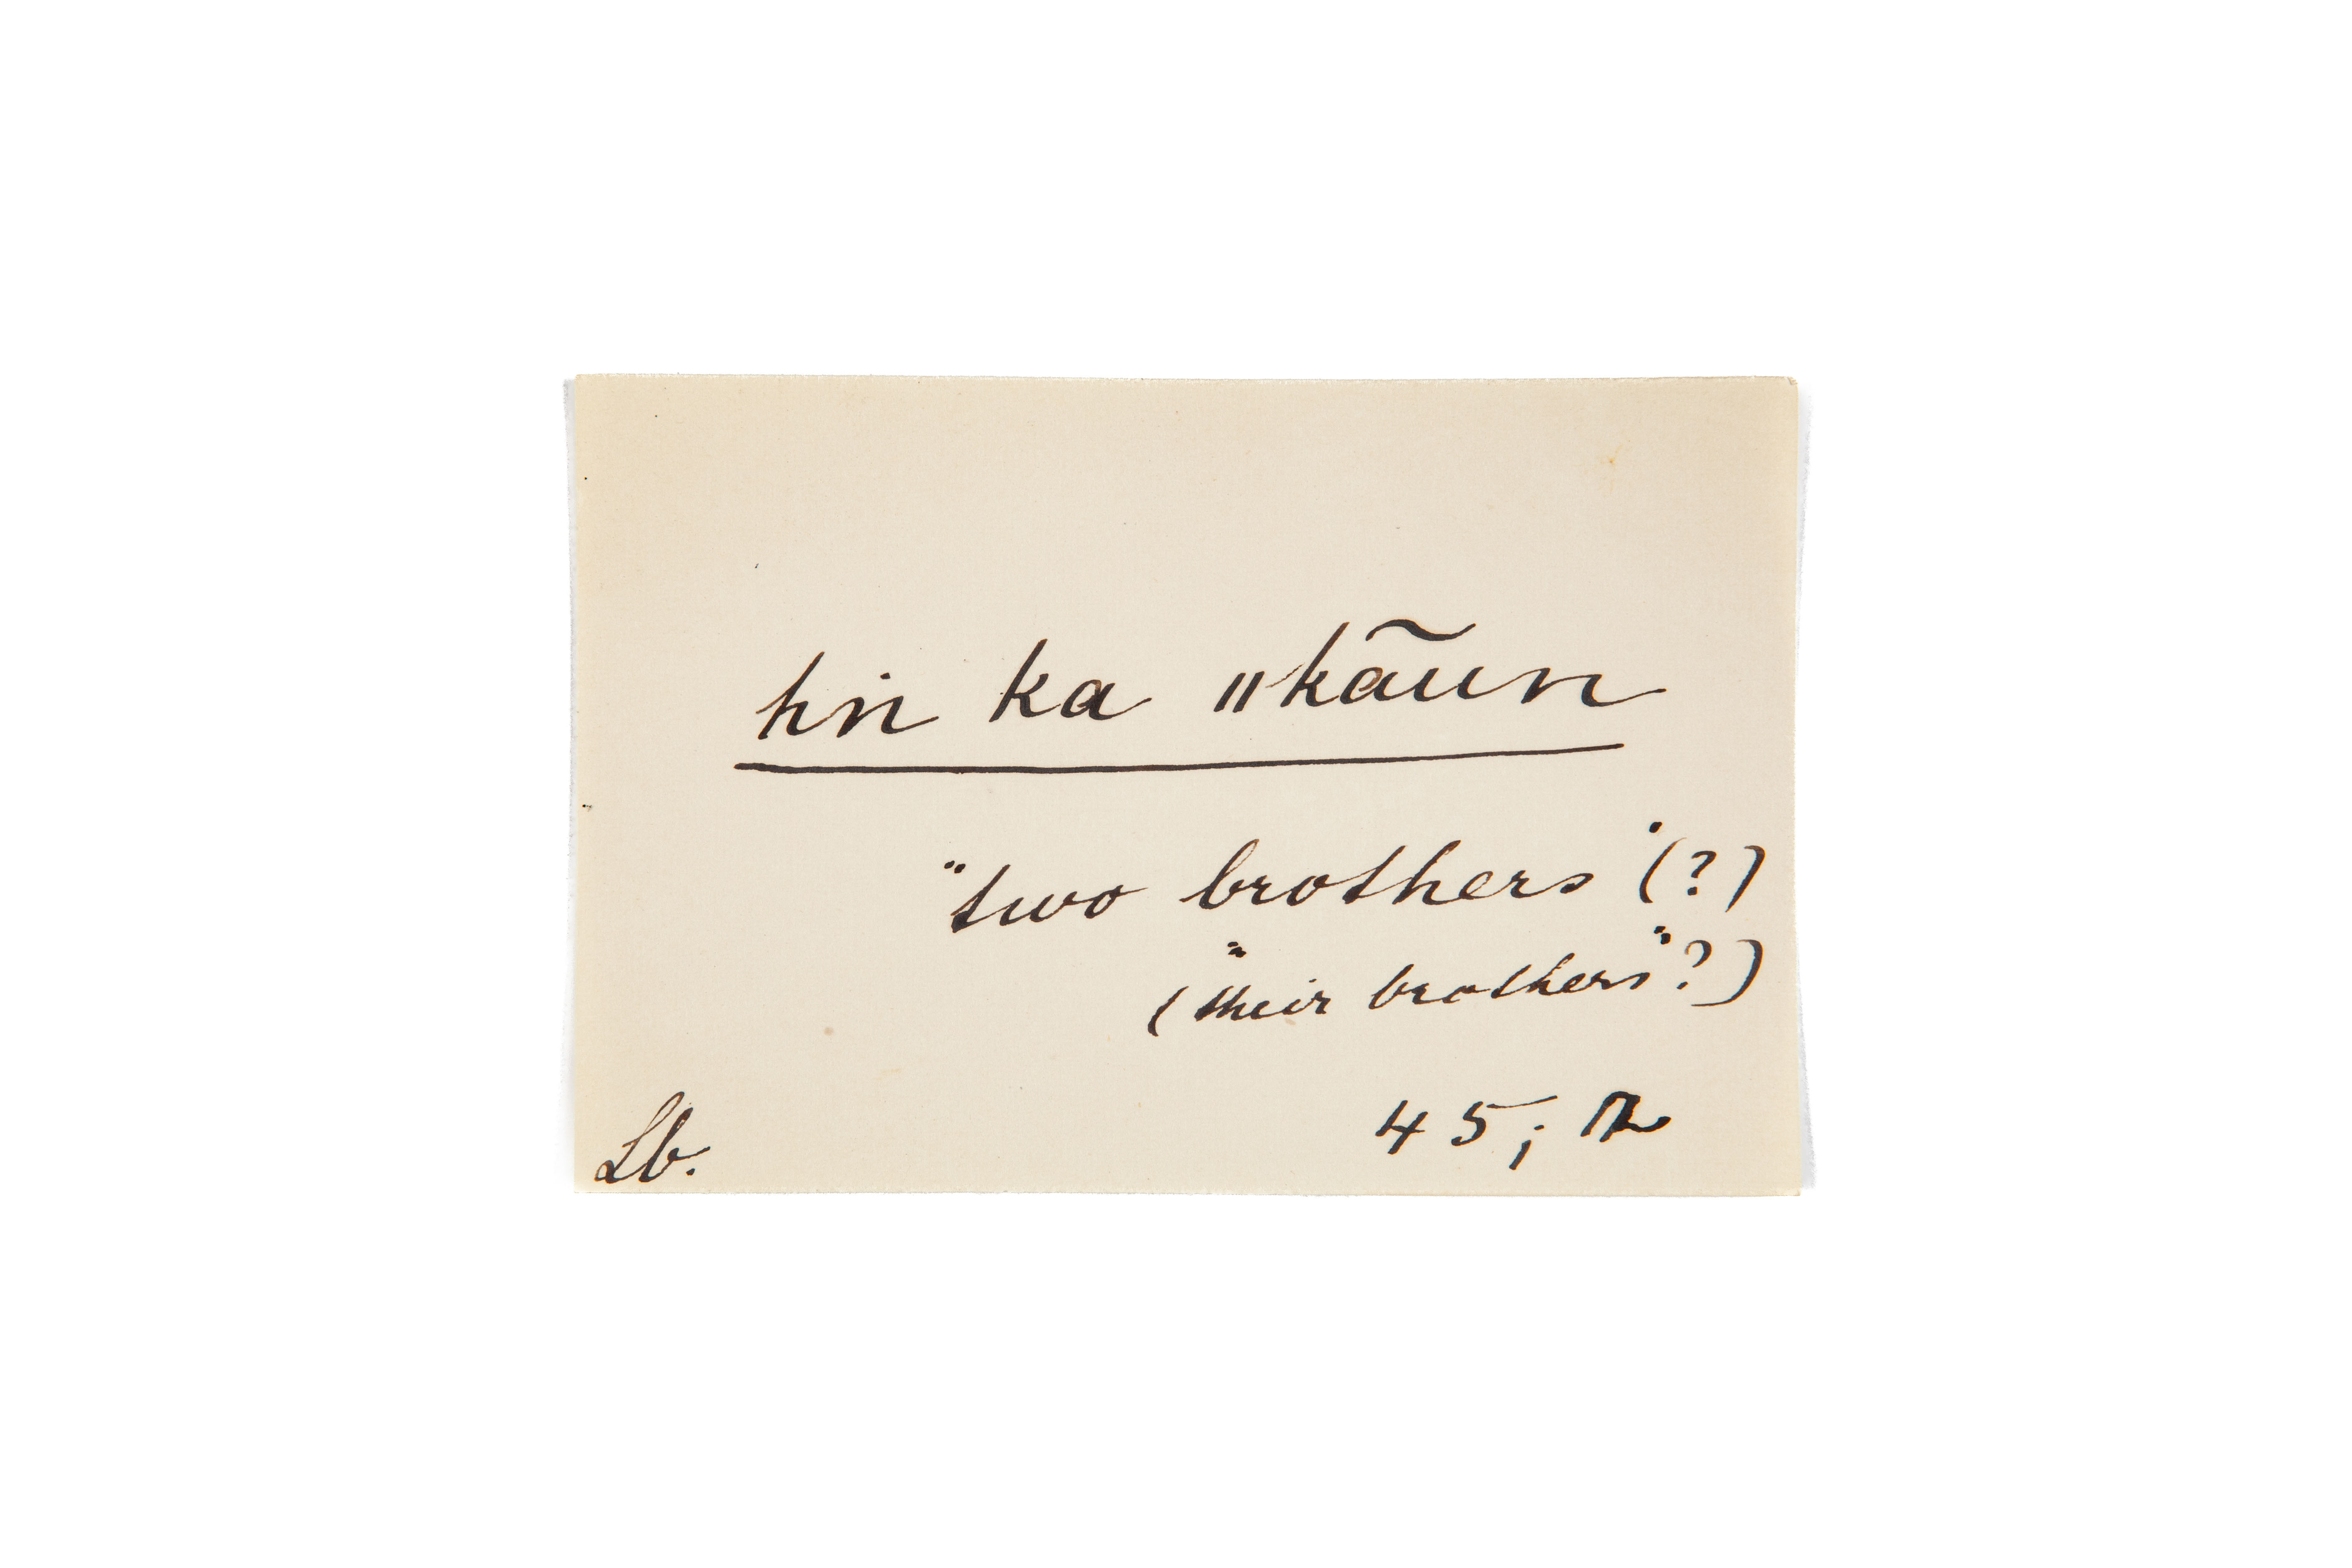 hin ka ǁkãũn
"two brothers" (?)
("their brothers"?)
45;
Lb.